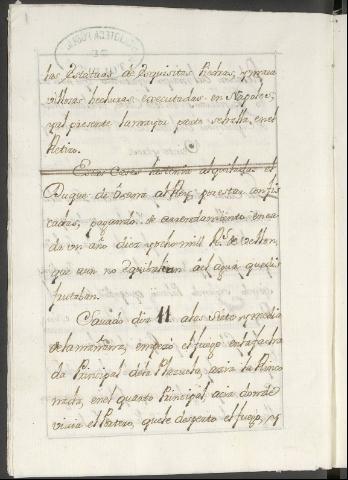 las estatuas de exquisitas Piedras, y mara
villosas hechuras executadas en Napoles,
y al presente la mayor parte se halla en el
Retiro.
Estas Casas las tenia alquiladas el
Duque de Osuna al Rey, por estar confis
cadas, pagando de arrendamiento en ca
da un año diez y ocho mill Rs. de vellon,
que aun no equibalian al agua que dis
frutaban.
Savado dia 11 a las siete y media
de la mañana, empezó el fuego en la facha
da Principal de la Plazuela, acia la Rinco
nada, en el quarto Principal, acia donde
vivia el Portero, que le desperto el fuego, y